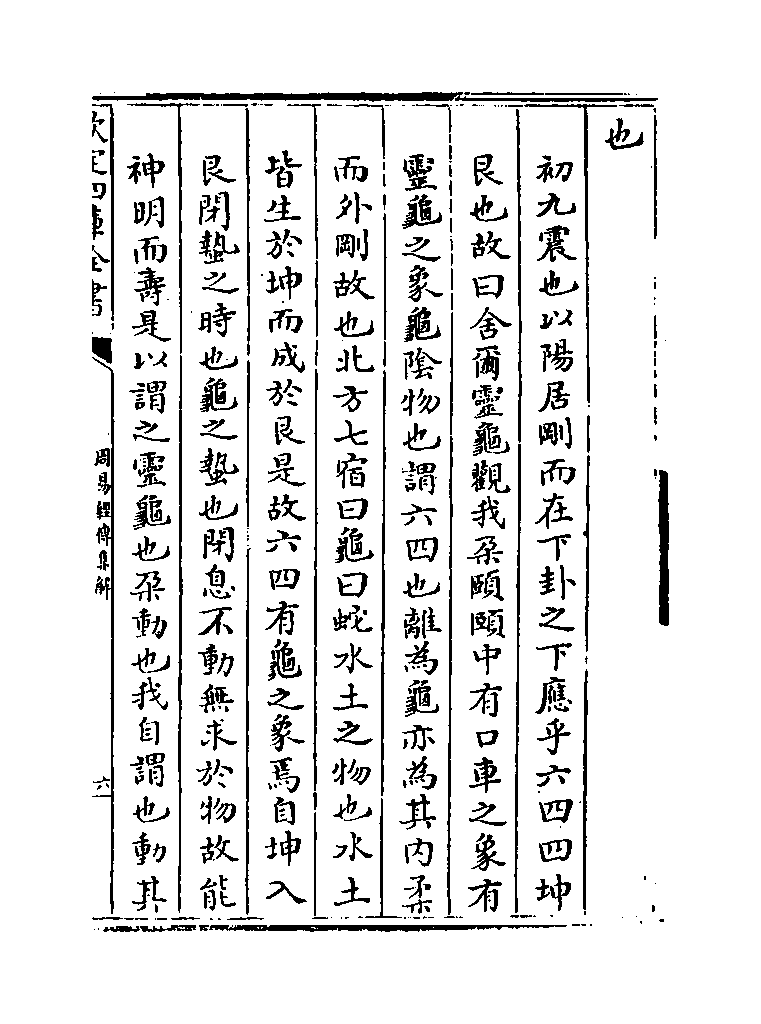 也
初九震也以陽居剛而在下卦之下應乎六四四坤
艮也故曰舍爾靈龜觀我朶頤頤中有口車之象有
靈龜之象龜陰物也謂六四也離為龜亦為其内柔
而外剛故也北方七宿曰龜曰蛇水土之物也水土
皆生於坤而成於艮是故六四有龜之象焉自坤入
艮閉蟄之時也龜之蟄也閉息不動無求於物故能
神明而壽是以謂之靈龜也朶動也我自謂也動其
欽定四庫全書
周易經傳集解
六